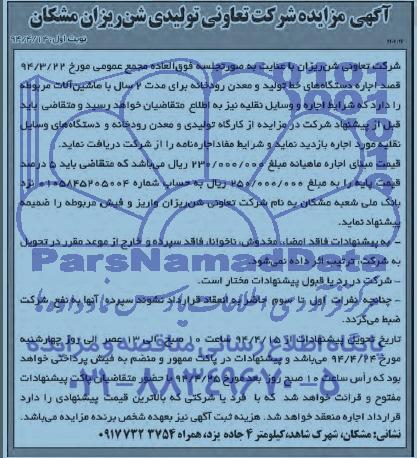 آگهی مزایده شرکت تعاونی تولیدی شن‌ریزان مشکان
نوبت اول: ۹۴/۴/۱۳
شرکت تعاونی شن‌ریزان با عنایت به صورتجلسه فوق‌العاده مجمع عمومی مورخ ۹۴/۳/۲۲
قصد اجاره دستگاه‌های خط تولید و معدن رودخانه برای مدت ۲ سال با ماشین‌آلات مربوطه
را دارد که شرایط اجاره و وسایل نقلیه نیز به اطلاع متقاضیان خواهد رسید و متقاضی باید
قبل از پیشنهاد شرکت در مزایده از کارگاه تولیدی و معدن رودخانه و دستگاه‌های وسایل
نقلیه مورد اجاره بازدید نماید و شرایط مفاد اجاره‌نامه را از شرکت دریافت نماید.
قیمت پایه اجاره ماهیانه مبلغ ۲۳۰/۰۰۰/۰۰۰ ریال می‌باشد که متقاضی باید ۵ درصد
قیمت پایه را به مبلغ ۲۵۰/۰۰۰/۰۰۰ ریال به حساب شماره ۰۱۰۵۸۴۵۲۰۵۰۰۴ نزد
بانک ملی شعبه مشکان به نام شرکت تعاونی شن‌ریزان واریز و فیش مربوطه را ضمیمه
پیشنهاد نماید.
- به پیشنهادات فاقد امضا، مخدوش، ناخوانا، فاقد سپرده و خارج از موعد مقرر در تحویل
به شرکت، ترتیب اثر داده نمی‌شود.
- شرکت در رد یا قبول پیشنهادات مختار است.
- چنانچه نفرات اول تا سوم حاضر به انعقاد قرارداد نشوند سپرده آنها به نفع شرکت
ضبط می‌گردد.
تاریخ تحویل پیشنهادات از ۹۴/۴/۱۵ ساعت ۱۰ صبح الی ۱۳ عصر الی روز چهارشنبه
مورخ ۹۴/۴/۲۴ می‌باشد و پیشنهادات در پاکت ممهور و منضم به فیش پرداختی خواهد
بود که رأس ساعت ۱۰ صبح روز بعد مورخ ۹۴/۴/۲۵ با حضور متقاضیان پاکت پیشنهادات
مفتوح و قرائت خواهد شد که با فرد یا شرکتی که بالاترین قیمت پیشنهادی را دارد
قرارداد اجاره منعقد خواهد شد. هزینه ثبت آگهی نیز بعهده شخص برنده مزایده می‌باشد.
نشانی: مشکان، شهرک شاهد، کیلومتر ۴ جاده یزد، همراه ۰۹۱۷۷۳۲۳۷۵۴
ParsNamadData
پایگاه اطلاع رسانی مناقصه و مزایده
۰۲۱-۸۸۳۴۹۶۷۰-۵